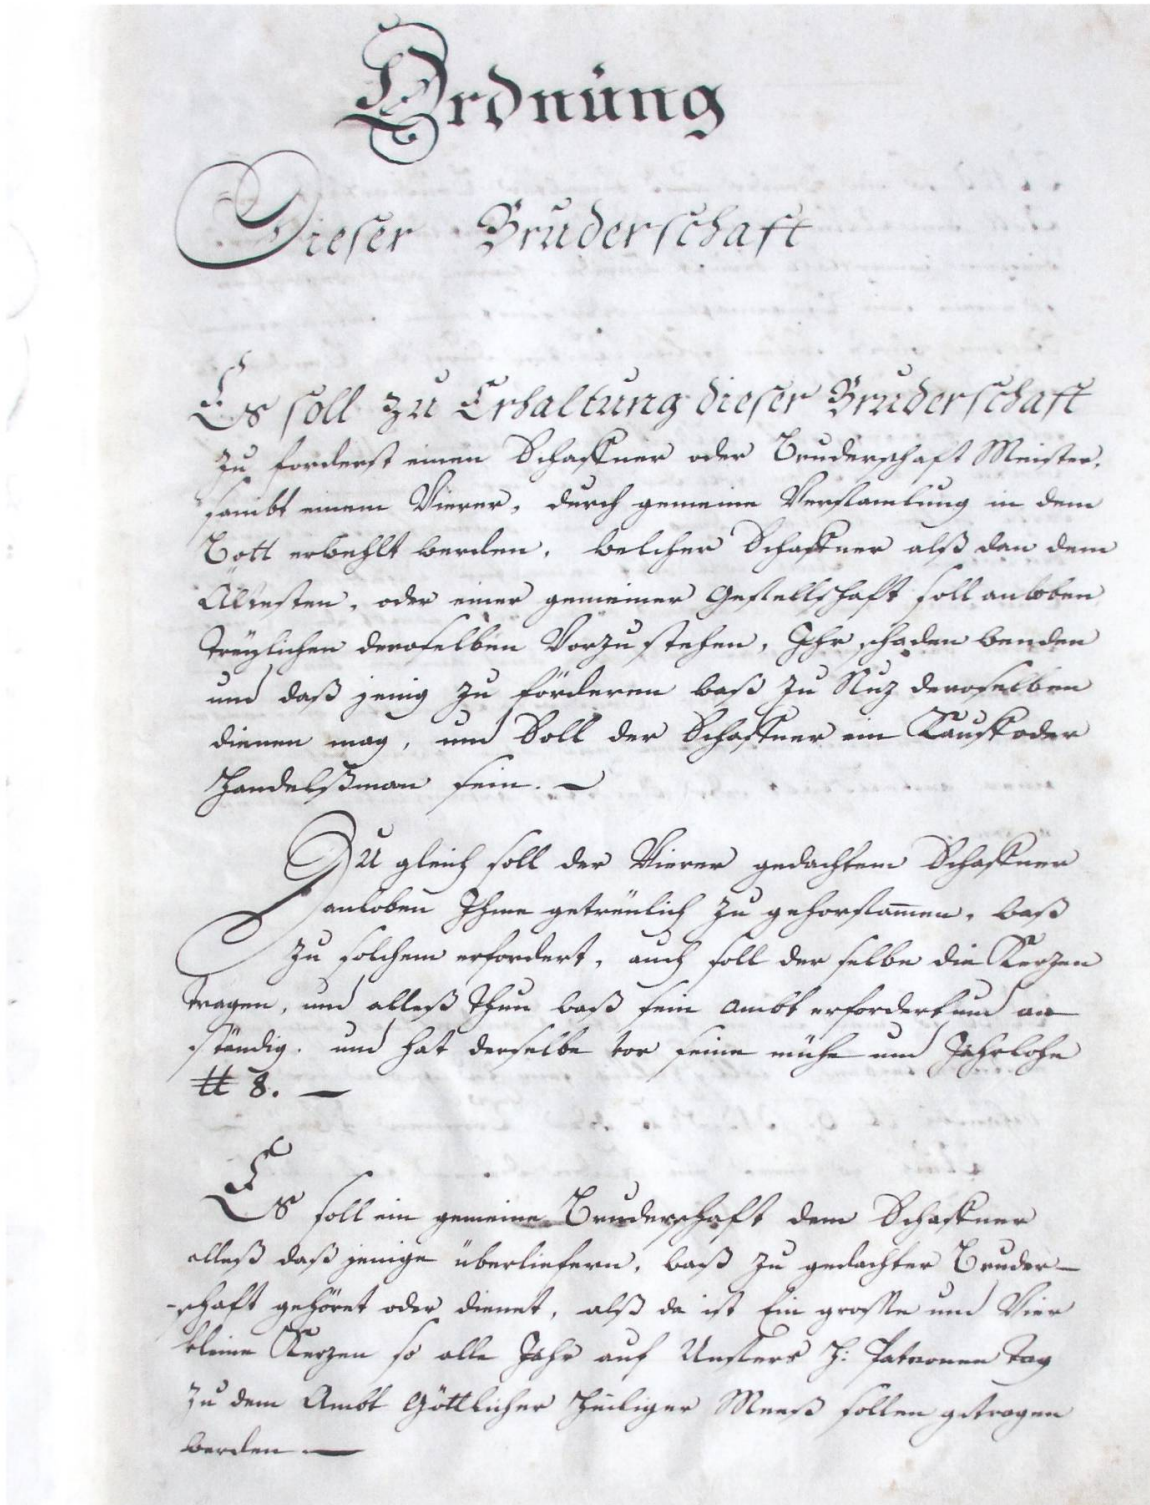 Ordnüng
Dieser Bruderschaft
Es soll zu Erhaltung dieser Bruderschaft
zu forderst einen Schaffner oder Bruderschaft Meister,
sambt einem Vierer, durch gemeine Versamlung in dem
Bott erwehlt werden, welcher Schaffner alß dan dem
Ältesten, oder einer gemeiner Gesellschaft soll anloben
treülichen deroselben Vorzustehen, Ihr schaden wenden
und daß jenig zu förderen waß zu Nuz deroselben
dienen mag, und Soll der Schaffner ein Kauf oder
Handelßman sein. —
Zu gleich soll der Vierer gedachtem Schaffner
anloben Ihme getreülich zu gehorsamen, waß
zu solchem erfordert, auch soll der selbe die Kerzen
tragen, und alleß thun waß sein ambt erfordert und an
ständig. und hat derselbe vor seine mühe und Jahrlohn
₶ 8. —
Es soll ein gemeine Bruderschaft dem Schaffner
alleß daß jenige überliefern, waß zu gedachter Bruder-
-schaft gehöret oder dienet, alß da ist Ein grosse und Vier
kleine Kerzen so alle Jahr auf Unsers H: Patronen tag
zu dem Ambt Göttlicher Heiliger Meeß sollen getragen
werden —